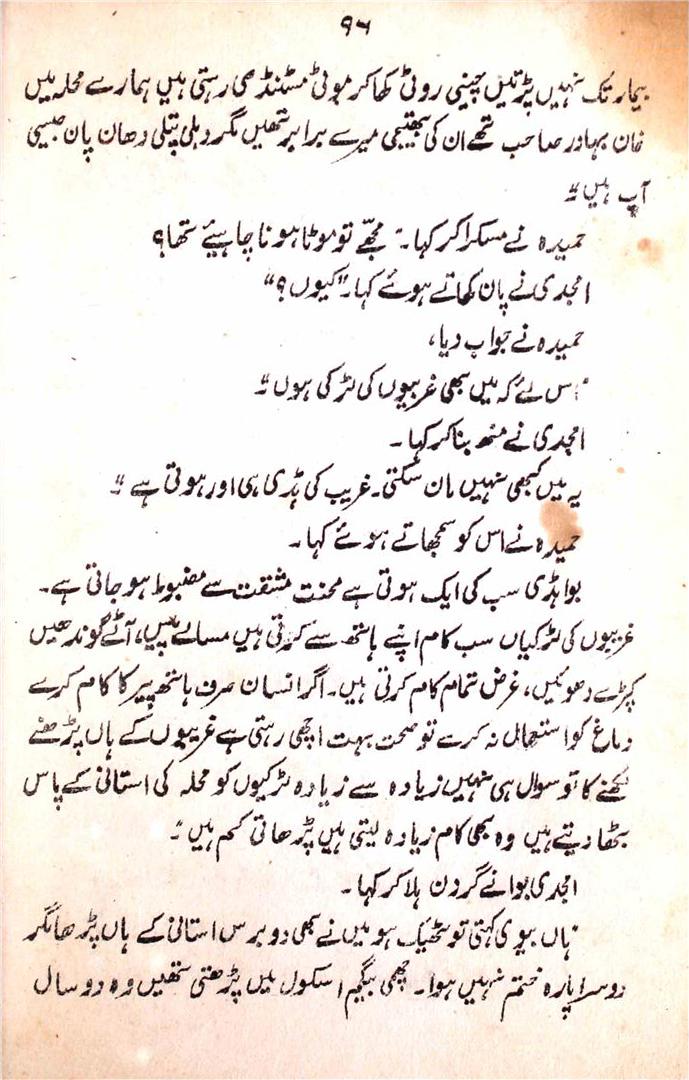 ۹۶
بیمار تک نہیں پڑتیں چینی روٹی کھا کر موٹی مسٹنڈی رہتی ہیں ہمارے محلہ میں
خان بہادر صاحب تھے ان کی بھتیجی میرے برابر تھیں مگر دبلی پتلی دھان پان جیسی
آپ ہیں"۔
حمیدہ نے مسکرا کر کہا۔ "مجھے تو موٹا ہونا چاہیئے تھا؟
امجدی نے پان کھاتے ہوئے کہا۔ "کیوں؟"
حمیدہ نے جواب دیا،
"اس لئے کہ میں بھی غریبوں کی لڑکی ہوں"۔
امجدی نے منھ بنا کر کہا۔
یہ میں کبھی نہیں مان سکتی۔ غریب کی ہڈی ہی اور ہوتی ہے"۔
حمیدہ نے اس کو سمجھاتے ہوئے کہا۔
بوا ہڈی سب کی ایک ہوتی ہے محنت مشقت سے مضبوط ہو جاتی ہے۔
غریبوں کی لڑکیاں سب کام اپنے ہاتھ سے کرتی ہیں مسالے پیسیں، آٹے گوندھیں
کپڑے دھوئیں، غرض تمام کام کرتی ہیں۔ اگر انسان صرف ہاتھ پیر کا کام کرے
دماغ کو استعمال نہ کرے تو صحت بہت اچھی رہتی ہے غریبوں کے ہاں پڑھنے
لکھنے کا تو سوال ہی نہیں زیادہ سے زیادہ لڑکیوں کو محلہ کی استانی کے پاس
بٹھا دیتے ہیں وہ بھی کام زیادہ لیتی ہیں پڑھاتی کم ہیں"۔
امجدی بوا نے گردن ہلا کر کہا۔
"ہاں بیوی کہتی تو ٹھیک ہو میں نے بھی دو برس استانی کے ہاں پڑھا مگر
دوسرا پارہ ختم نہیں ہوا۔ چھمی بیگم اسکول میں پڑھتی تھیں وہ دو سال